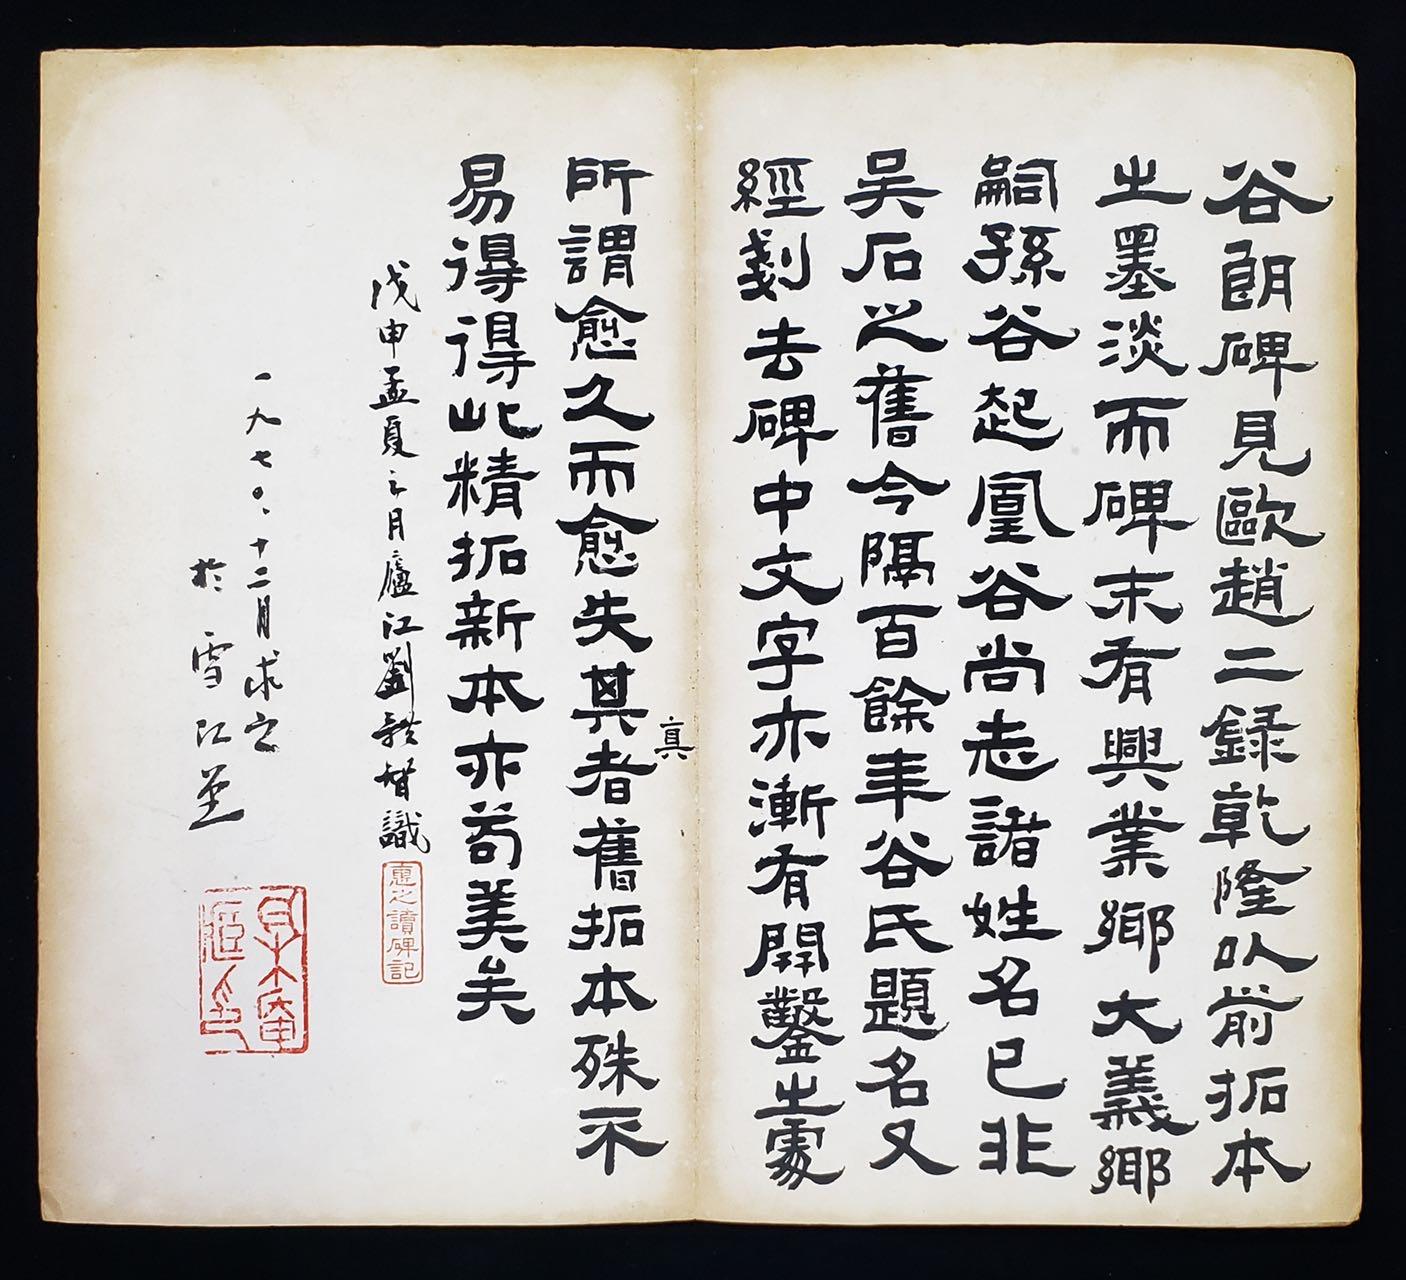 谷朗碑見歐趙二録乾隆㕥前拓本
之墨淡而碑末有興業鄉大義鄉
嗣孫谷起凰谷尚志諸姓名已非
吳石之舊今隔百餘年谷氏題名又
經剗去碑中文字亦漸有開鑿之處
所謂愈久而愈失其者舊拓本殊不
真
易得得此精拓新本亦苟美矣
戊申孟夏之月廬江劉體智識
惠之讀碑記
一九七〇、十二月求之
於雪江堂